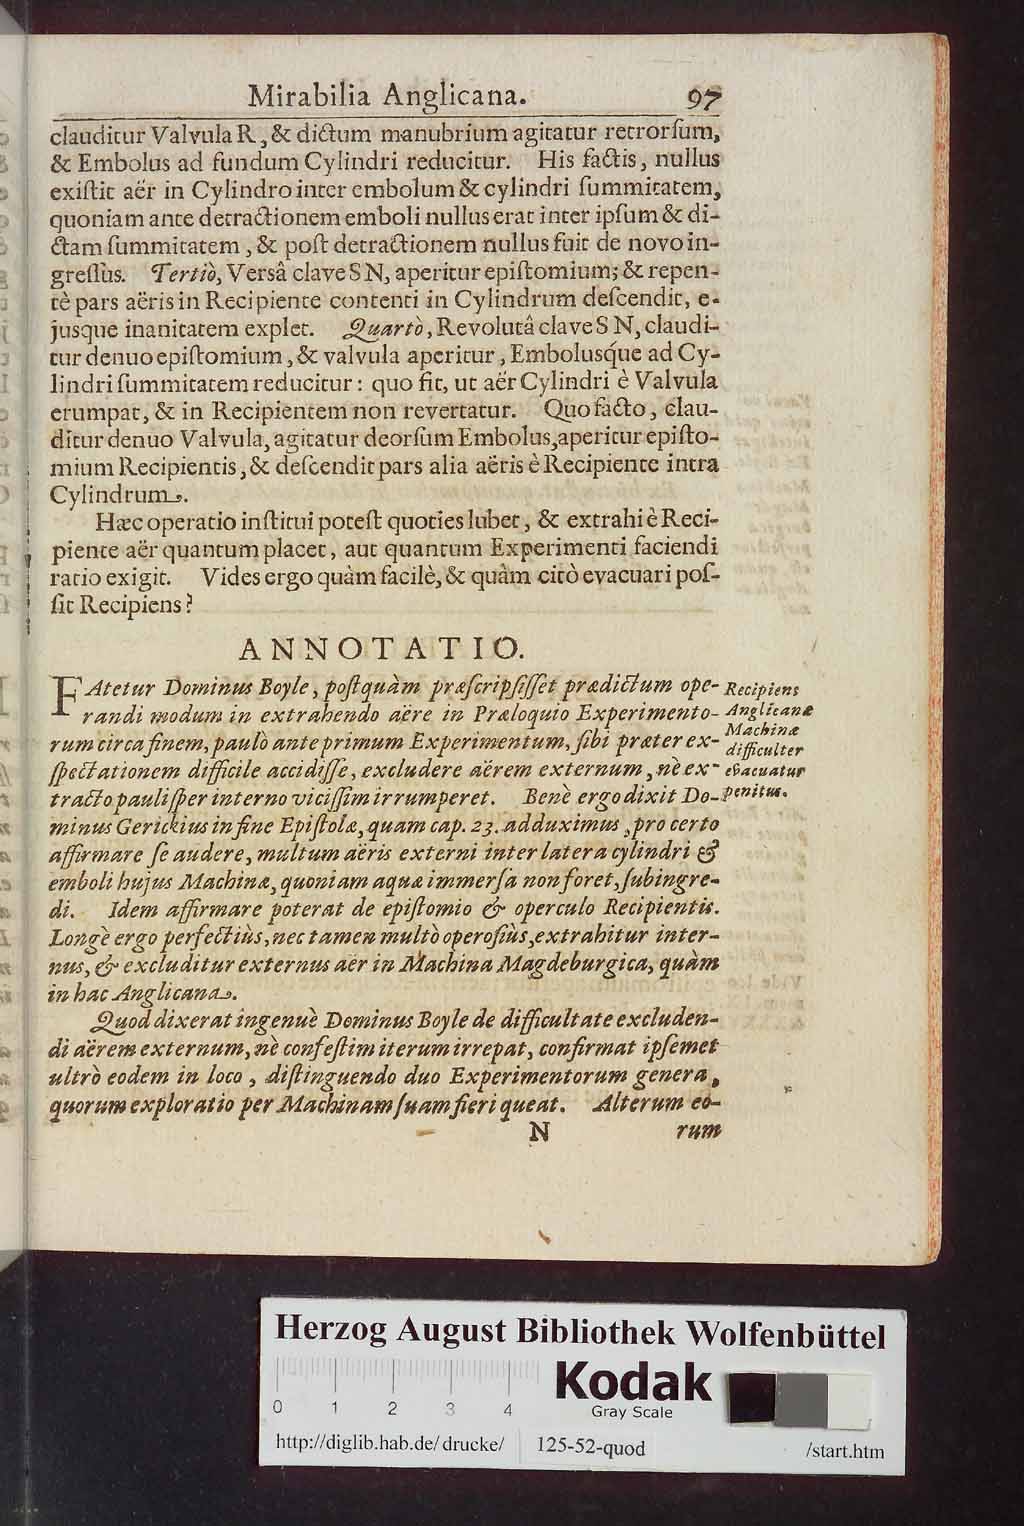 Mirabilia Anglicana. 97
clauditur Valvula R, & dictum manubrium agitatur retrorſum,
& Embolus ad fundum Cylindri reducitur. His factis, nullus
exiſtit aër in Cylindro inter embolum & cylindri ſummitatem,
quoniam ante detractionem emboli nullus erat inter ipſum & di-
ctam ſummitatem, & poſt detractionem nullus fuit de novo in-
greſſus. Tertiò, Versâ clave S N, aperitur epiſtomium; & repen-
tè pars aëris in Recipiente contenti in Cylindrum deſcendit, e-
jusque inanitatem explet. Quartò, Revolutâ clave S N, claudi-
tur denuo epiſtomium, & valvula aperitur, Embolusq́ue ad Cy-
lindri ſummitatem reducitur: quo fit, ut aër Cylindri è Valvula
erumpat, & in Recipientem non revertatur. Quo facto, clau-
ditur denuo Valvula, agitatur deorſum Embolus, aperitur epiſto-
mium Recipientis, & deſcendit pars alia aëris è Recipiente intra
Cylindrum.
Hæc operatio inſtitui poteſt quoties lubet, & extrahi è Reci-
piente aër quantum placet, aut quantum Experimenti faciendi
ratio exigit. Vides ergo quàm facilè, & quàm citò evacuari poſ-
ſit Recipiens?
ANNOTATIO.
FAtetur Dominus Boyle, poſtquàm præſcripſiſſet prædictum ope-
randi modum in extrahendo aëre in Præloquio Experimento-
rum circa finem, paulò ante primum Experimentum, ſibi præter ex-
ſpectationem difficile accidiſſe, excludere aërem externum, nè ex-
tracto pauliſper interno viciſſim irrumperet. Benè ergo dixit Do-
minus Gerickius in fine Epiſtolæ, quam cap. 23. adduximus, pro certo
affirmare ſe audere, multum aëris externi inter latera cylindri &
emboli hujus Machinæ, quoniam aquæ immerſa non foret, ſubingre-
di. Idem affirmare poterat de epiſtomio & operculo Recipientis.
Longè ergo perfectiùs, nec tamen multò operoſiùs, extrahitur inter-
nus, & excluditur externus aër in Machina Magdeburgica, quàm
in hac Anglicana.
Quod dixerat ingenuè Dominus Boyle de difficultate excluden-
di aërem externum, nè confeſtim iterum irrepat, confirmat ipſemet
ultrò eodem in loco, diſtinguendo duo Experimentorum genera,
quorum exploratio per Machinam ſuam fieri queat. Alterum eo-
N rum
Recipiens
Anglicanæ
Machinæ
difficulter
evacuatur
penitus.
Herzog August Bibliothek Wolfenbüttel
0 1 2 3 4
Kodak
Gray Scale
http://diglib.hab.de/drucke/ 125-52-quod /start.htm